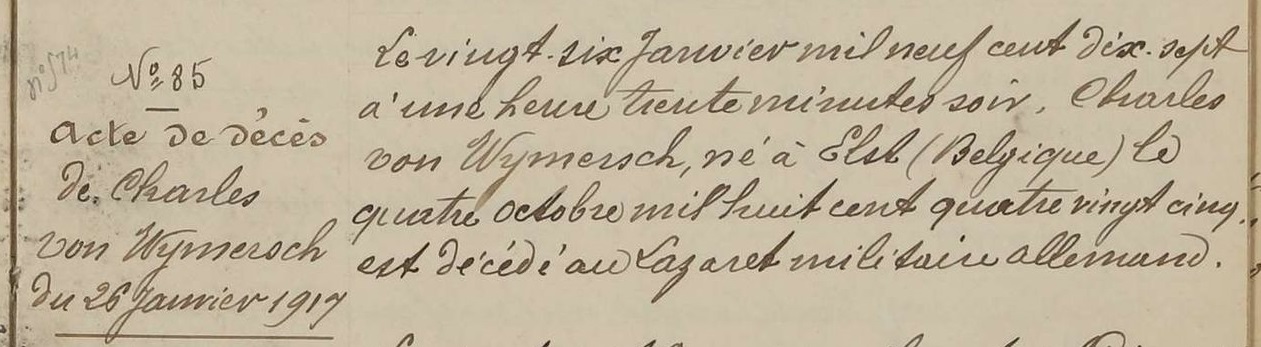 n° 574
N° 85
Acte de décès
de Charles
von Wymersch
du 26 Janvier 1917
Le vingt-six Janvier mil neuf cent dix-sept
à une heure trente minutes soir, Charles
von Wymersch, né à Elst (Belgique) le
quatre octobre mil huit cent quatre vingt cinq.,
est décédé au Lazaret militaire allemand.